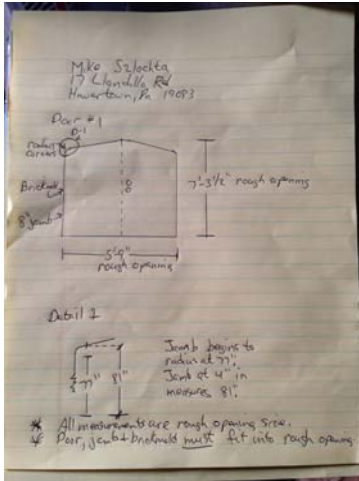 Mike Szlachta
17 Llandillo Rd
Havertown, Pa 19083
Door #1
D-1
radius
corners
Brickmold
8" jamb
7'-3 1/2" rough opening
5'-9"
rough opening
Detail 1
77" 81"
Jamb begins to
radius at 77".
Jamb at 4" in
measures 81".
* All measurements are rough opening size.
* Door, jamb + brickmold must fit into rough opening.